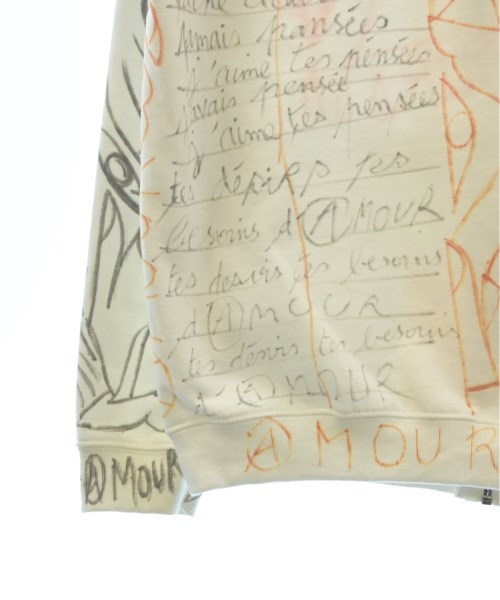 jamais pansées
j'aime tes pensées
javais pensée
j'aime tes pensées
tes désirs tes
besoins d'ⒶMOUR
tes desirs tes besoins
d'ⒶMOUR
tes désirs tes besoins
d'ⒶMOUR
ⒶMOUR
ⒶMOUR